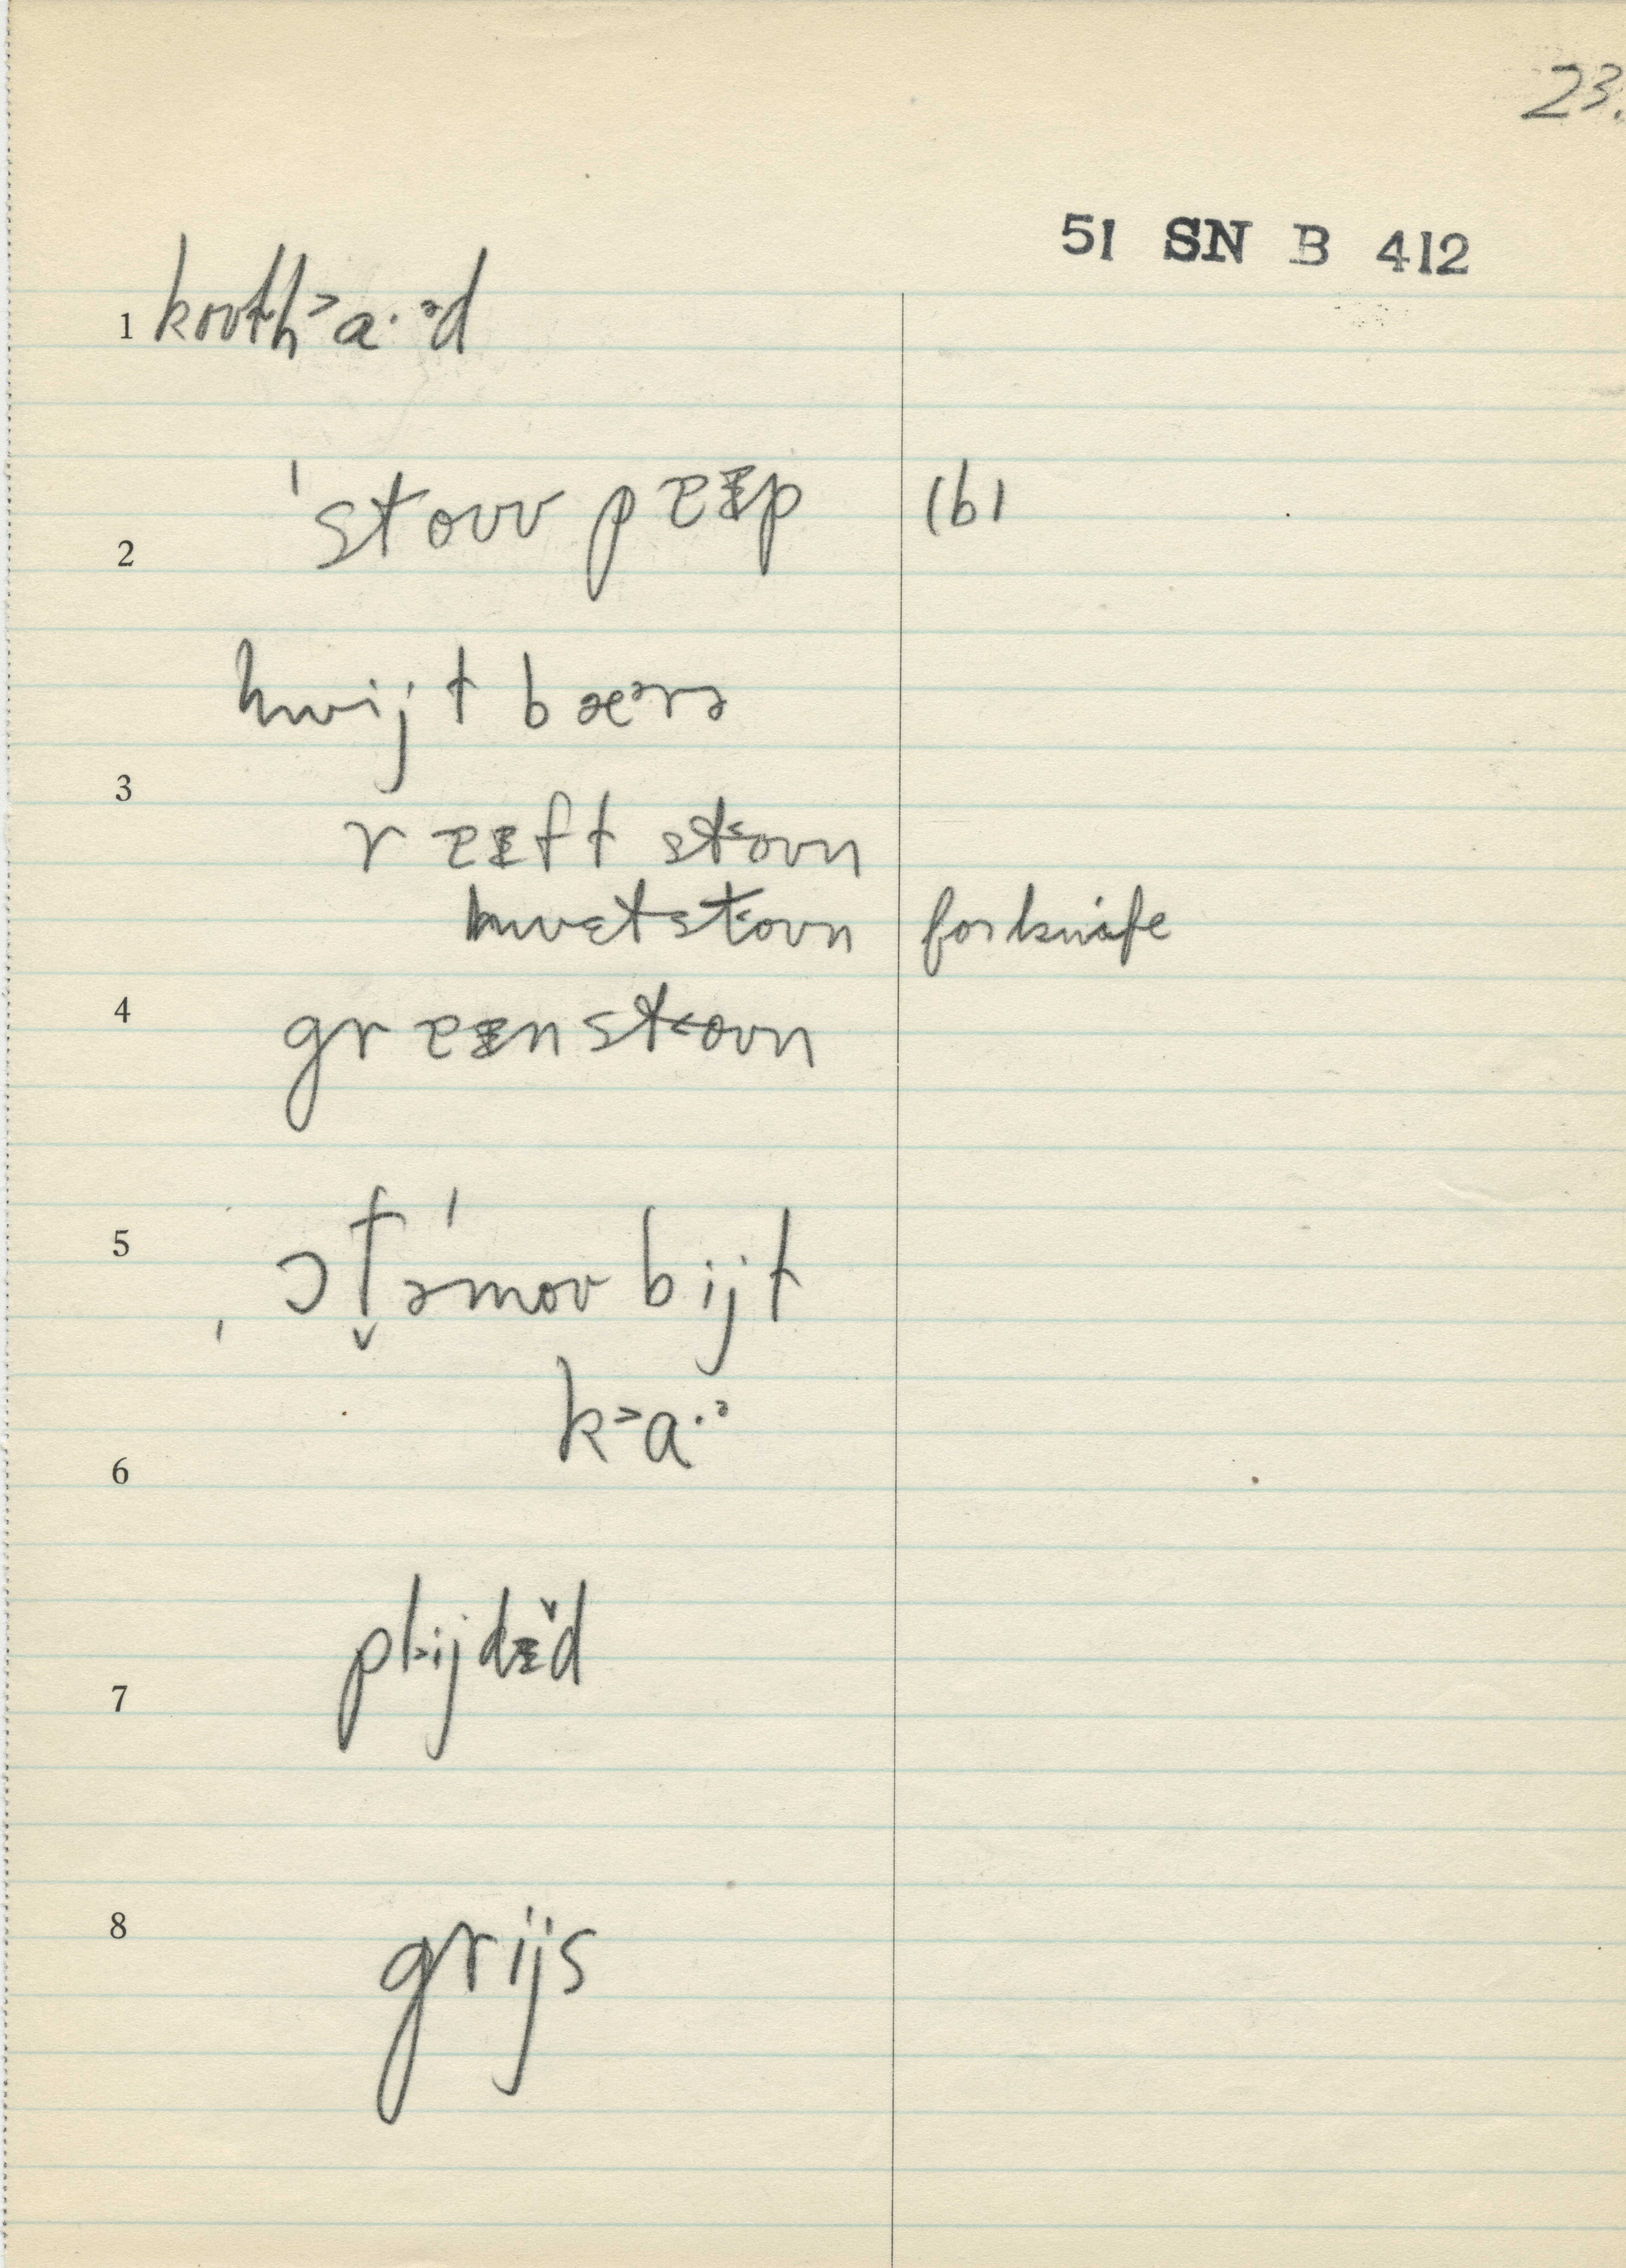 23.
51 SN B 412
1 kouth˃a·ᵊd
2 ˈstouv pɐɪp (b)
hwijt bæᵊrə
3
rɐɪft st˂oun
hwɛtst˂oun for knife
4 grɐɪnst˂oun
5 ˌɔt̬əˈmou bijt
k˃a·ᵊ
6
7 pl˃ijdɪ̌d
8 grijs